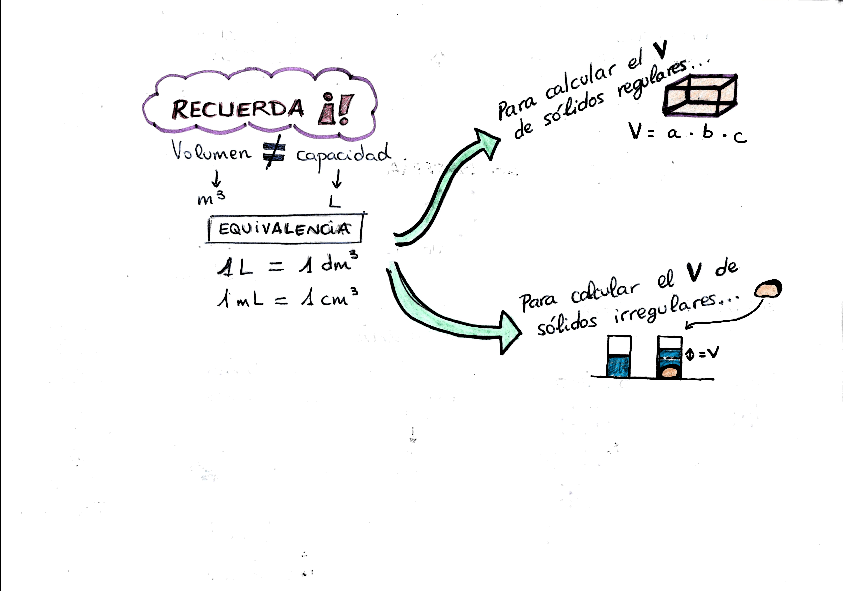 RECUERDA ¡!
Volumen ≠ capacidad
↓ ↓
m³ L
EQUIVALENCIA
1L = 1 dm³
1 mL = 1 cm³
Para calcular el V
de sólidos regulares...
V = a · b · c
Para calcular el V de
sólidos irregulares...
⇕ = V